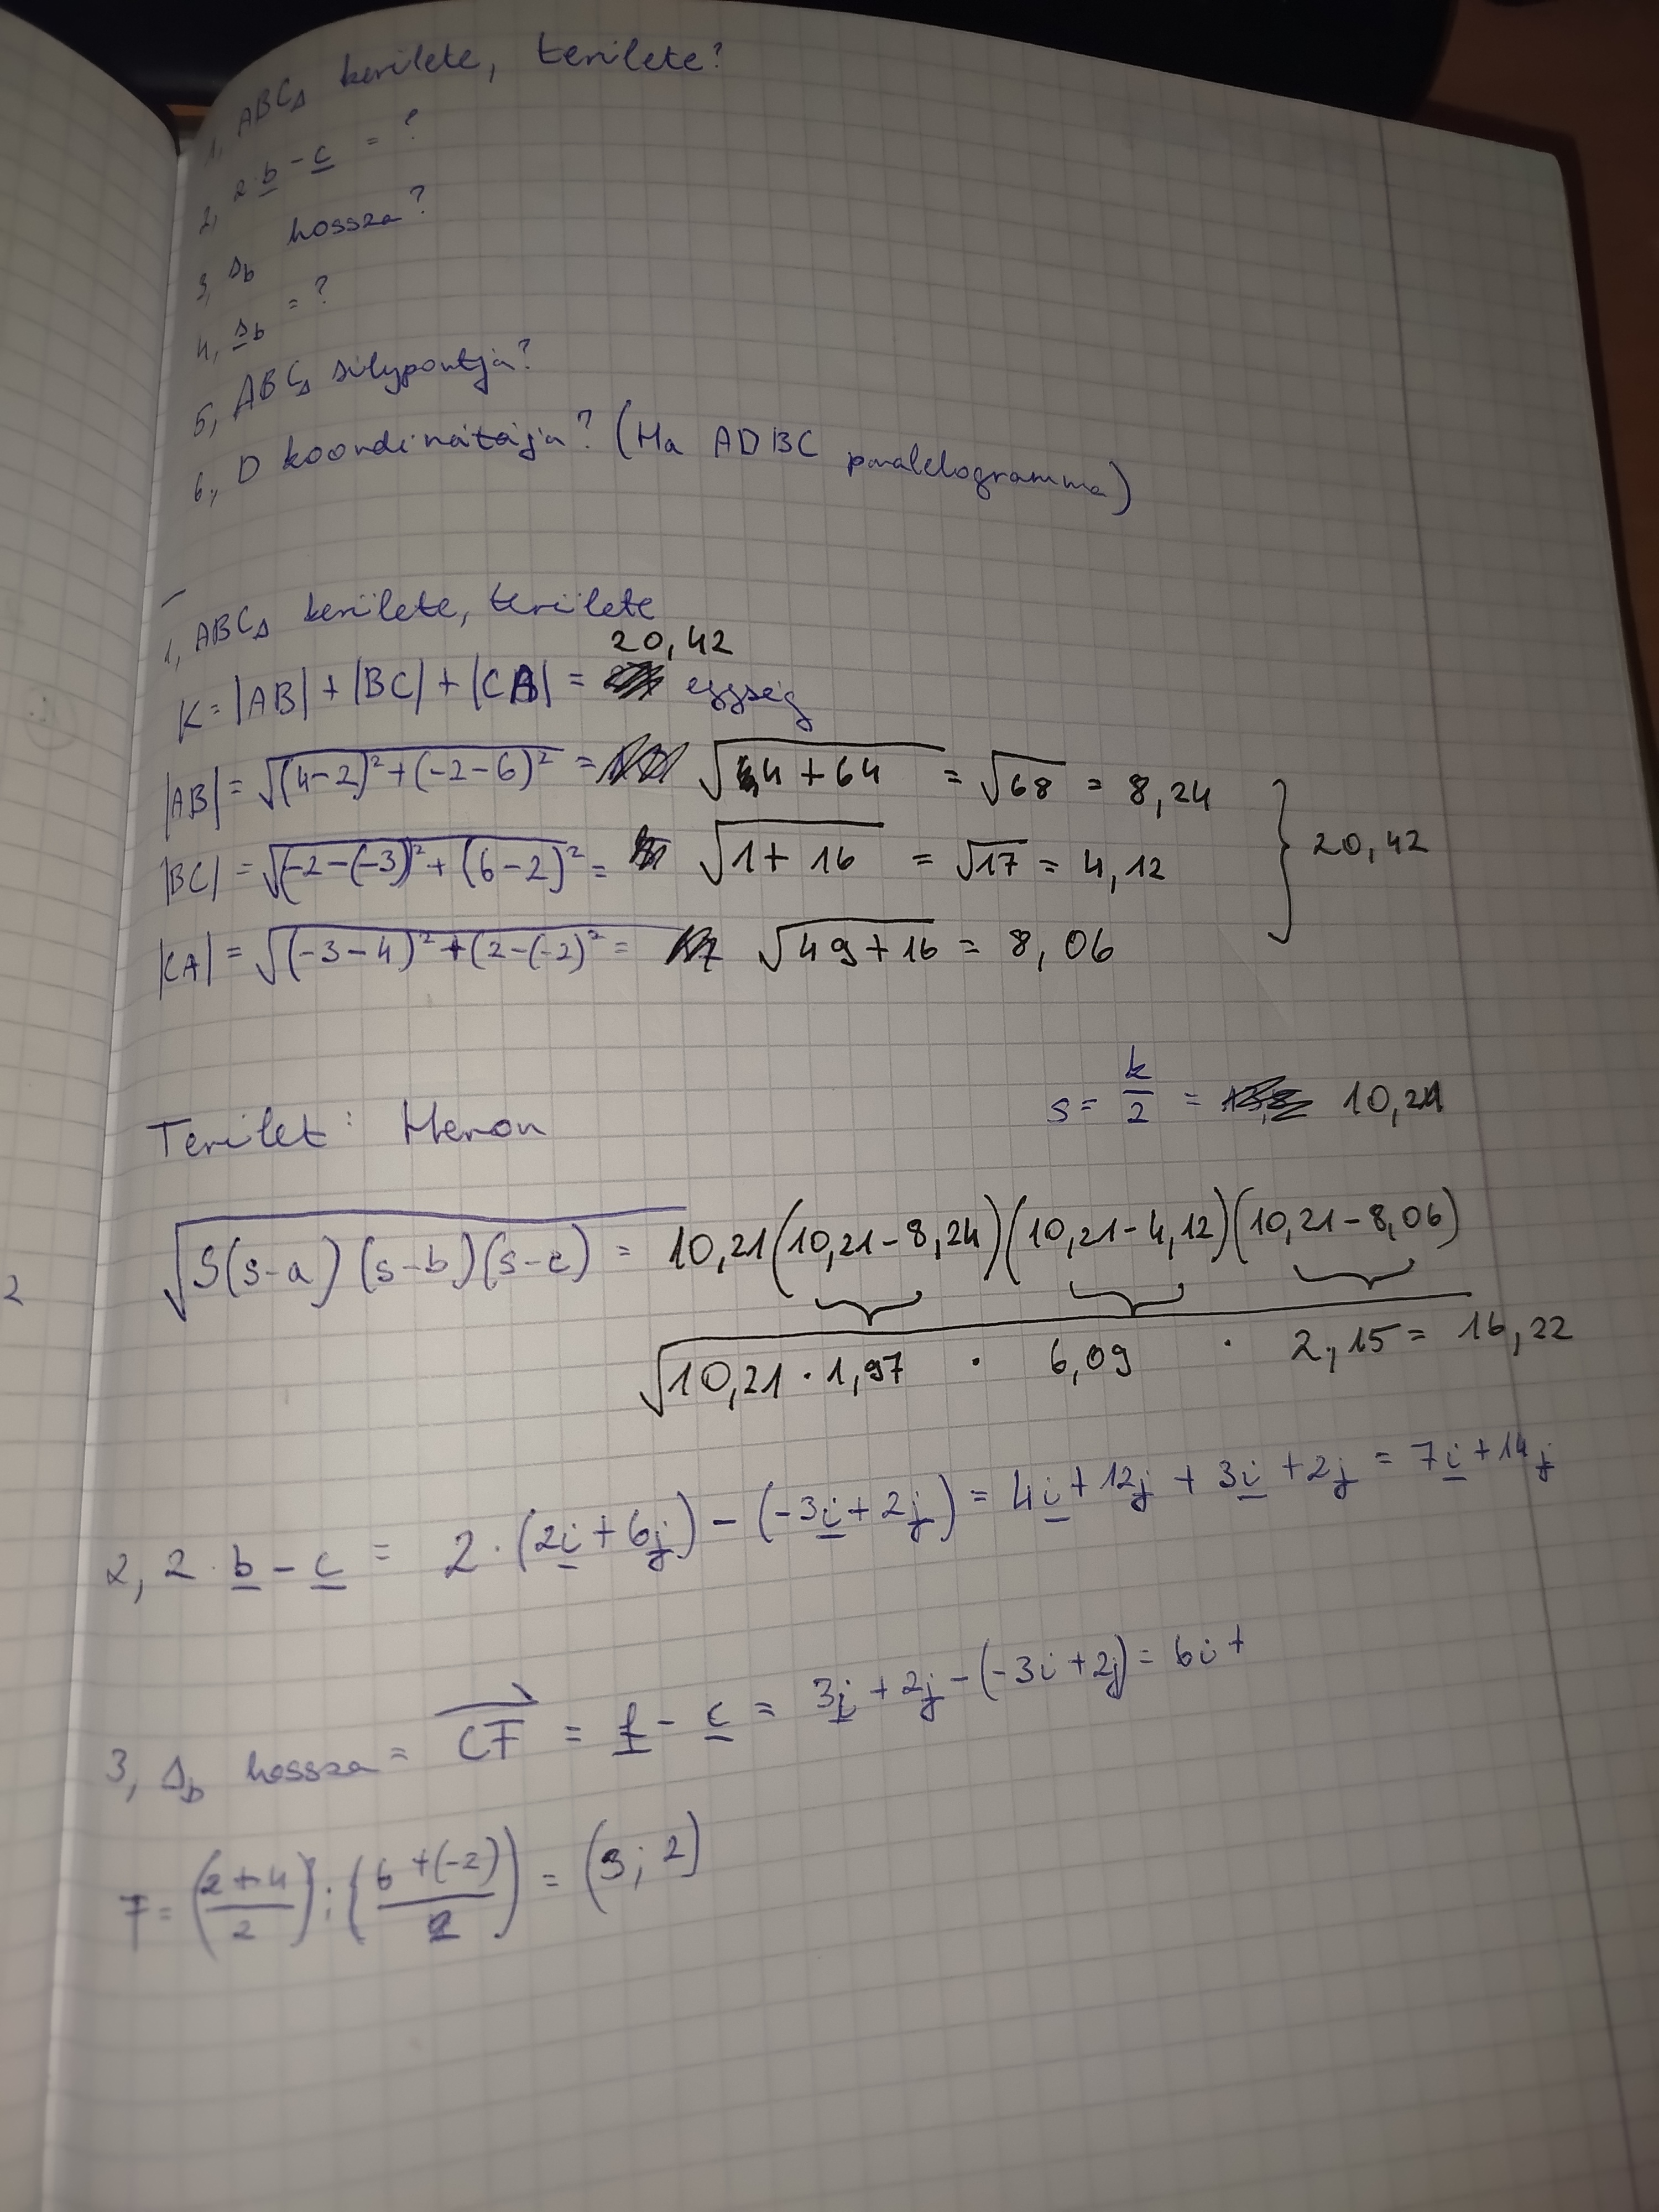 1, ABC△ kerülete, területe?
2, 2·b - c = ?
3, s_b hossza?
4, s_b = ?
5, ABC△ súlypontja?
6, D koordinátája? (Ha ADBC paralelogramma)
1, ABC△ kerülete, területe
20,42
K = |AB| + |BC| + |CA| = egység
|AB| = √((4-2)²+(-2-6)²) = √(4+64) = √68 = 8,24
|BC| = √((-2-(-3))²+(6-2)²) = √(1+16) = √17 = 4,12 } 20,42
|CA| = √((-3-4)²+(2-(-2)²) = √(49+16) = 8,06
s = k/2 = 10,21
Terület: Heron
√(S(s-a)(s-b)(s-c)) = 10,21(10,21-8,24)(10,21-4,12)(10,21-8,06)
√(10,21 · 1,97 · 6,09 · 2,15) = 16,22
2
2, 2·b - c = 2·(2i+6j) - (-3i+2j) = 4i+12j + 3i+2j = 7i+14j
3, s_b hossza = CF = f - c = 3i+2j-(-3i+2j) = 6i+
F = (2+4/2);(6+(-2)/2) = (3;2)